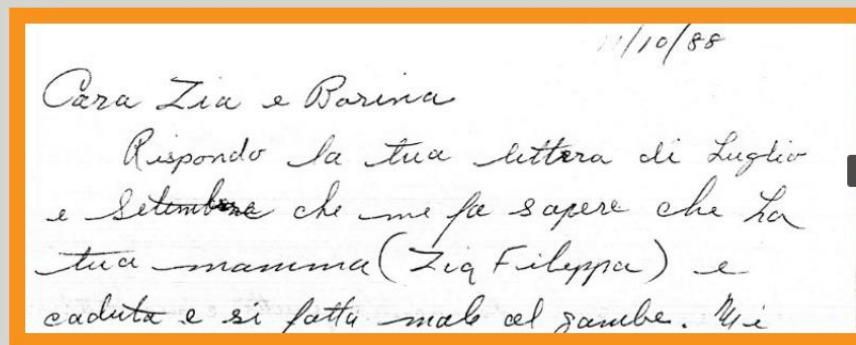 /10/88
Cara Zia e Borina
Rispondo la tua lettera di Luglio
e Setembre che me fa sapere che La
tua mamma (Zia Fileppa) e
caduta e si fatta male al gambe. Mi